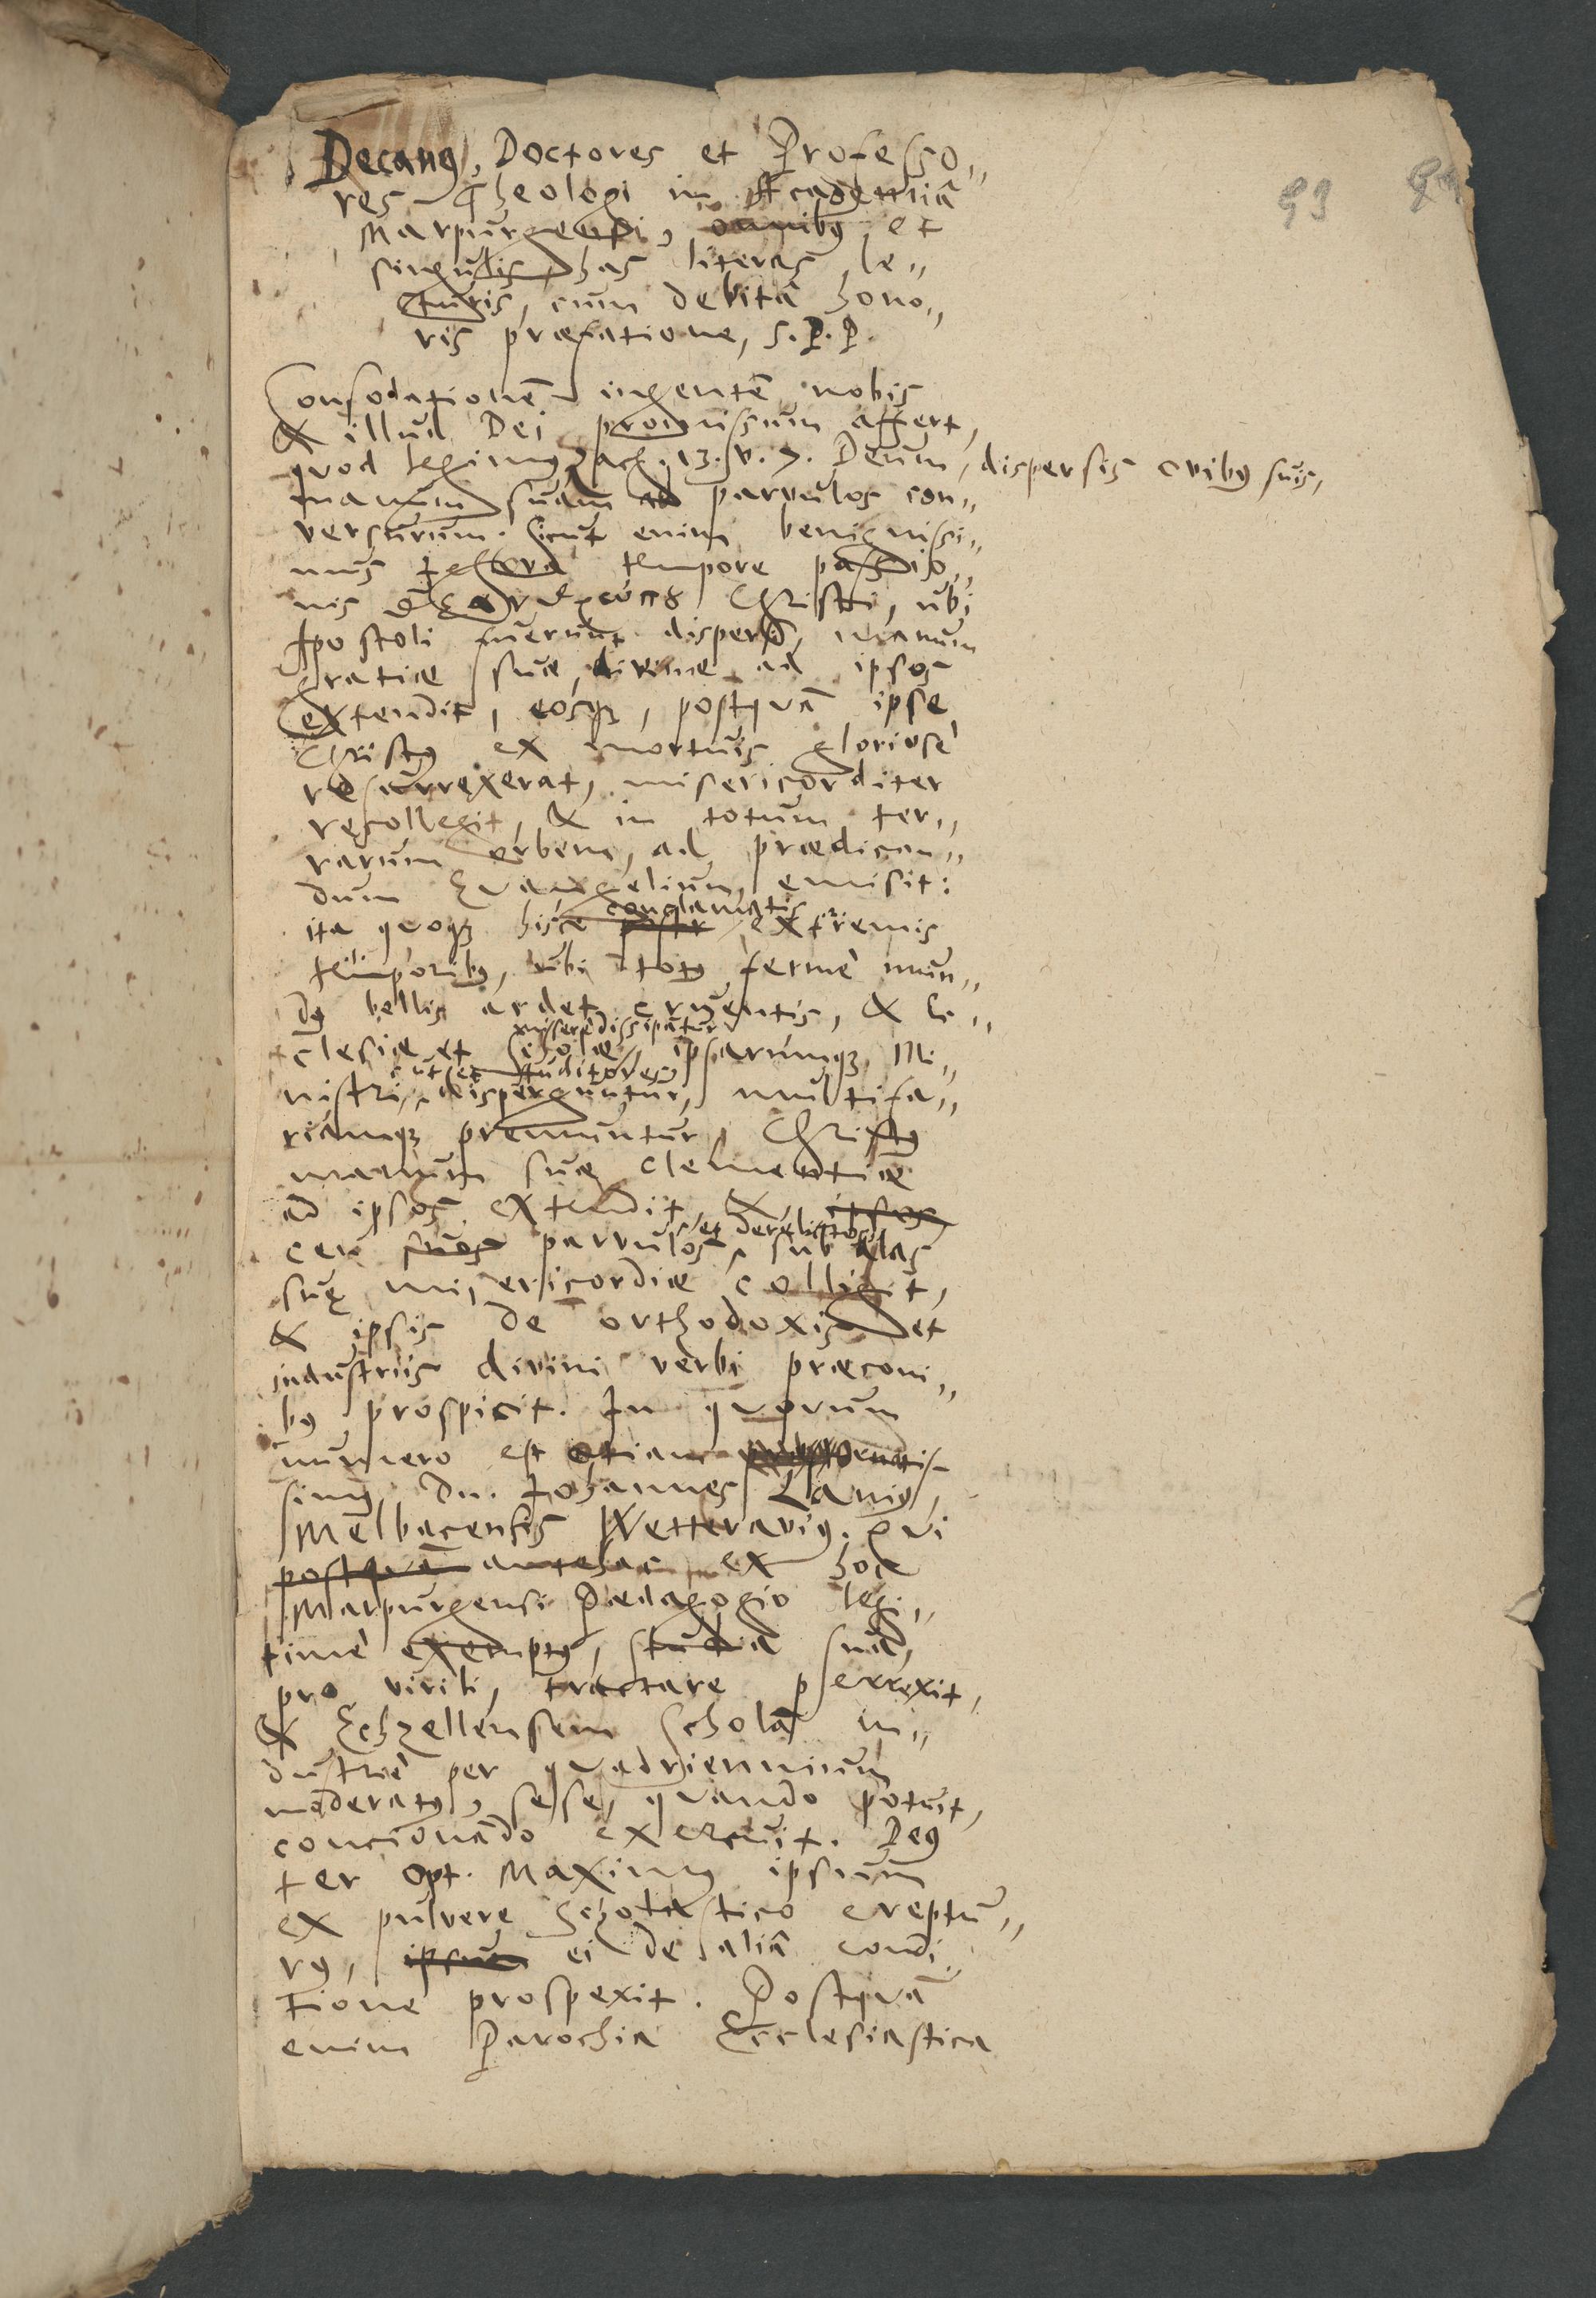 93
Decanus, Doctores et Professo„
res Theologi in Academiâ
Marpurgensi, omnibus et
singulis has literas le„
cturis, cum debitâ hono„
ris præfatione, S. P. P.
Consolationem ingentem nobis
& illud Dei promissum affert,
quod legimus Zach. 13. v. 7. Deum, dispersis ovibus suis,
manum suam ad parvulos con„
versurum. Sicut enim benignissi„
mus tempore passio„
nis Christi, ubi
Apostoli fuerunt dispersi, manum
gratiæ suæ divinæ ad ipsos
extendit, eosque, postquam ipse
Christus ex mortuis gloriosè
resurrexerat, misericorditer
recollegit, & in totum ter„
rarum orbem, ad prædican„
dum Evangelium emisit:
conclamatis
ita quoque hisce extremis
temporibus, ubi totus fermè mun„
dus bellis ardet cruentis, & Ec„
miserè dissipantur
clesiæ et Scholæ ipsarumque Mi„
nistri disperguntur, multifa„
riamque premuntur, Christus
manum suæ clementiæ
ad ipsos extendit, & ipsos
et derelictos
ceu suos parvulos, sub alas
suæ misericordiæ colligit,
& ipsis de orthodoxis et
industriis divini verbi præconi„
bus prospicit. In quorum
numero est etiam
simus Dn. Johannes Lanius,
Melbacensis Wetteravius. Qui
postquam antehac ex hoc
Marpurgensi Pædagogio legi„
timè exemptus, studia sua,
pro virili, tractare perrexit,
& Echzellensem Scholam in„
dustriè per quadriennium
moderatus, sese, quando potuit,
concionando exercuit. Deus
ter Opt. Maximus ipsum
ex pulvere Scholastico ereptu„
rus, ipsum ei de aliâ condi„
tione prospexit. Postquam
enim Parochia Ecclesiastica